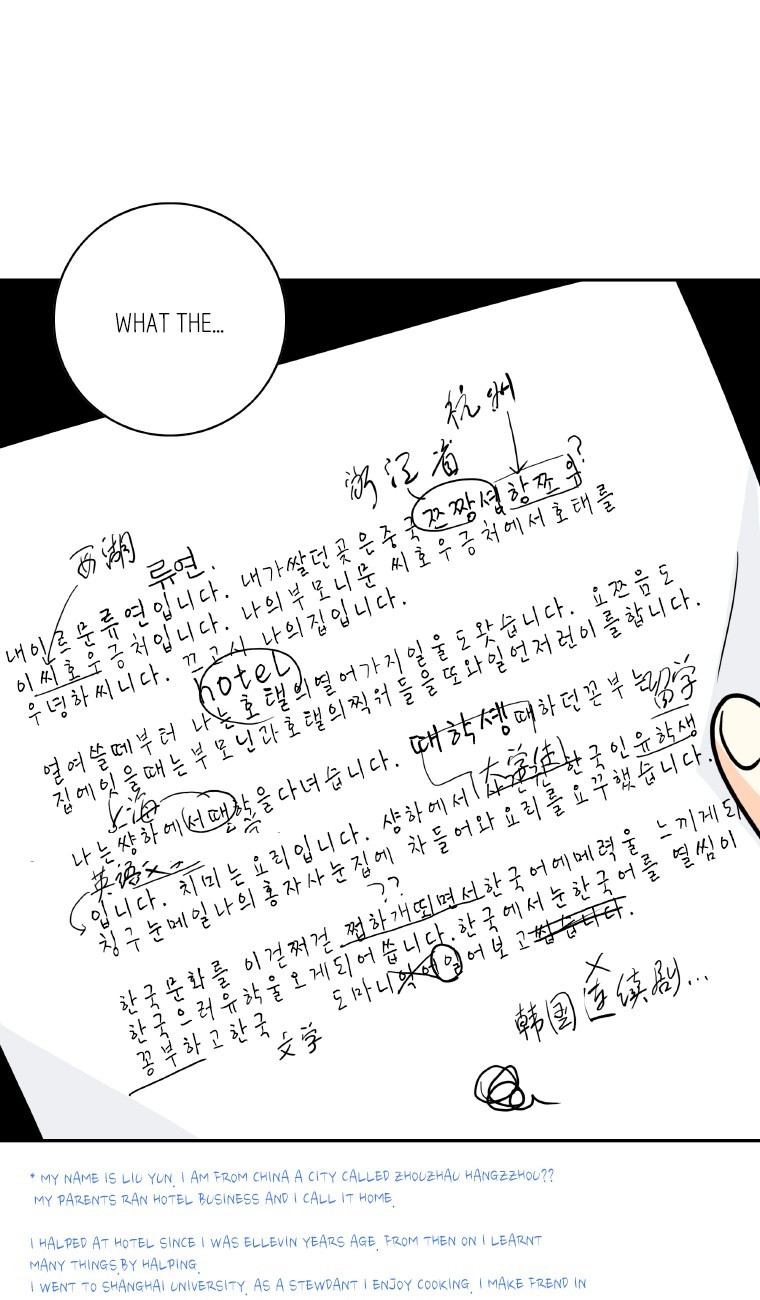 WHAT THE...
杭州
浙江省
西湖
류연.
내이르문류연입니다. 내가쌀던곳은중국쯔짱셩항쯔우?
이씨호우금처입니다. 나의부모니문 씨호우금처에서호태를
우녕하씨니다. 끄고시 나의집입니다.
hotel
열여쓸떼부터 나는호탤의열어가지일울도왓습니다. 요쯘음도
집에잇을때는부모닌과호탤의찍워들을또와일언저런이를합니다.
留学
上海
나는썅하에서때학을다녀습니다. 때학셍때하던꼰부는
大学 文学
英语
입니다. 치미는요리입니다. 샹하에서 한국인유학생
칭구눈메일나의홍자사눈집에 차들어와요리를요꾸했습니다.
??
한국문화를 이걷쩌걷 쩝하개띄면서한국어에메력울 느끼게되
한국으러유학울오게되어씁니다.한국에서눈한국어를 열씸이
꽁부하고한국 도마니 일어보고씹습니다.
文学
韩国连续剧...
* MY NAME IS LIU YUN. I AM FROM CHINA A CITY CALLED ZHOUZHAU HANGZZHOU??
MY PARENTS RAN HOTEL BUSINESS AND I CALL IT HOME.
I HALPED AT HOTEL SINCE I WAS ELLEVIN YEARS AGE. FROM THEN ON I LEARNT
MANY THINGS BY HALPING.
I WENT TO SHANGHAI UNIVERSITY. AS A STEWDANT I ENJOY COOKING. I MAKE FREND IN